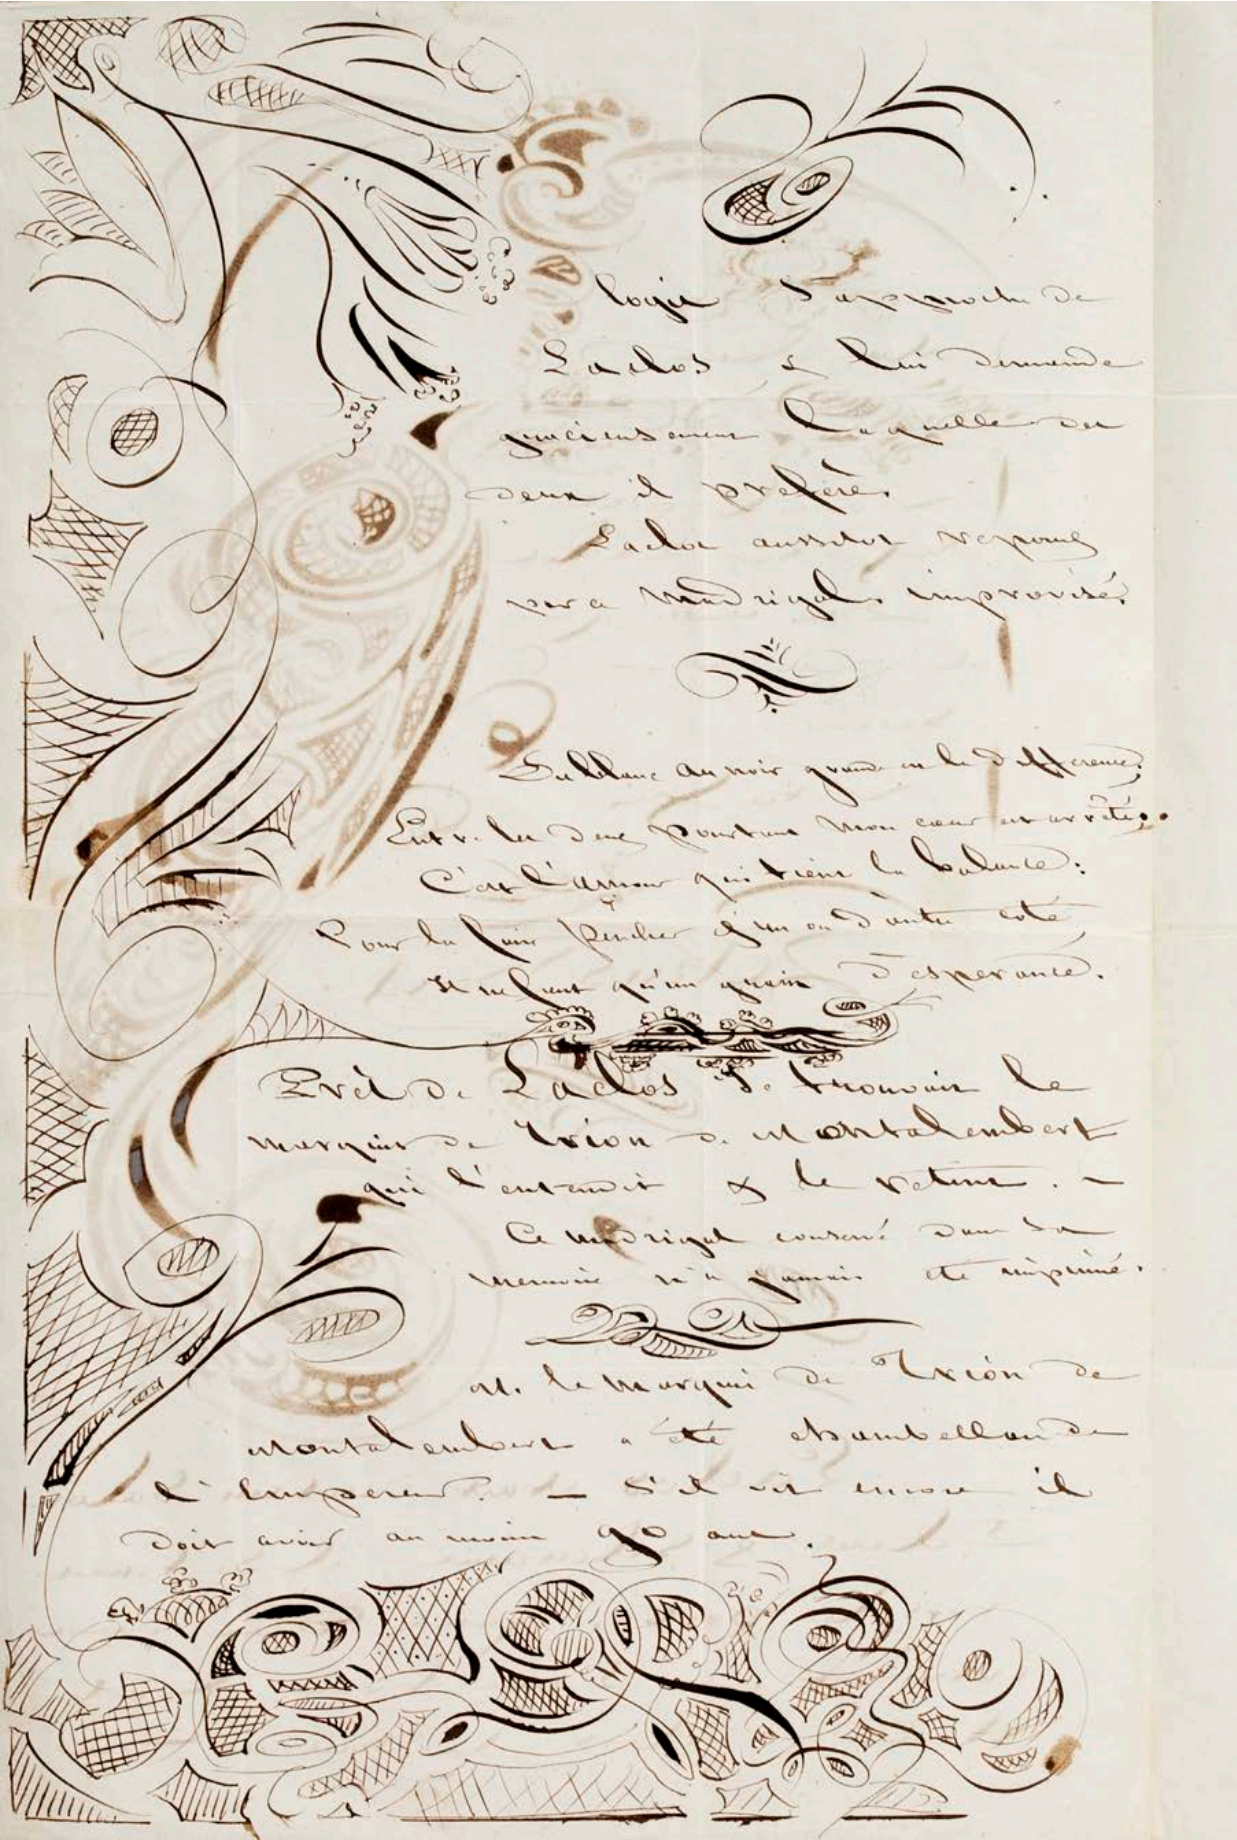 loge s'approche de
Laclos & lui demande
gracieusement laquelle des
deux il préfère.
Laclos aussitot repond
par ce Madrigal improvisé.
Du blanc au noir grande est la différence;
Entre les deux pourtant mon cœur est arrêté;
C'est l'amour qui tient la balance:
Pour la faire pencher d'un ou d'autre coté
Il ne faut qu'un grain d'esperance.
Près de Laclos se trouvait le
marquis de Trion de Montalembert
qui l'entendit & le retint. —
Ce madrigal conservé dans sa
memoire n'a jamais été imprimé.
M. le Marquis de Trion de
Montalembert a été chambellan de
l'Empereur. — S'il vit encore il
doit avoir au moins 90 ans.